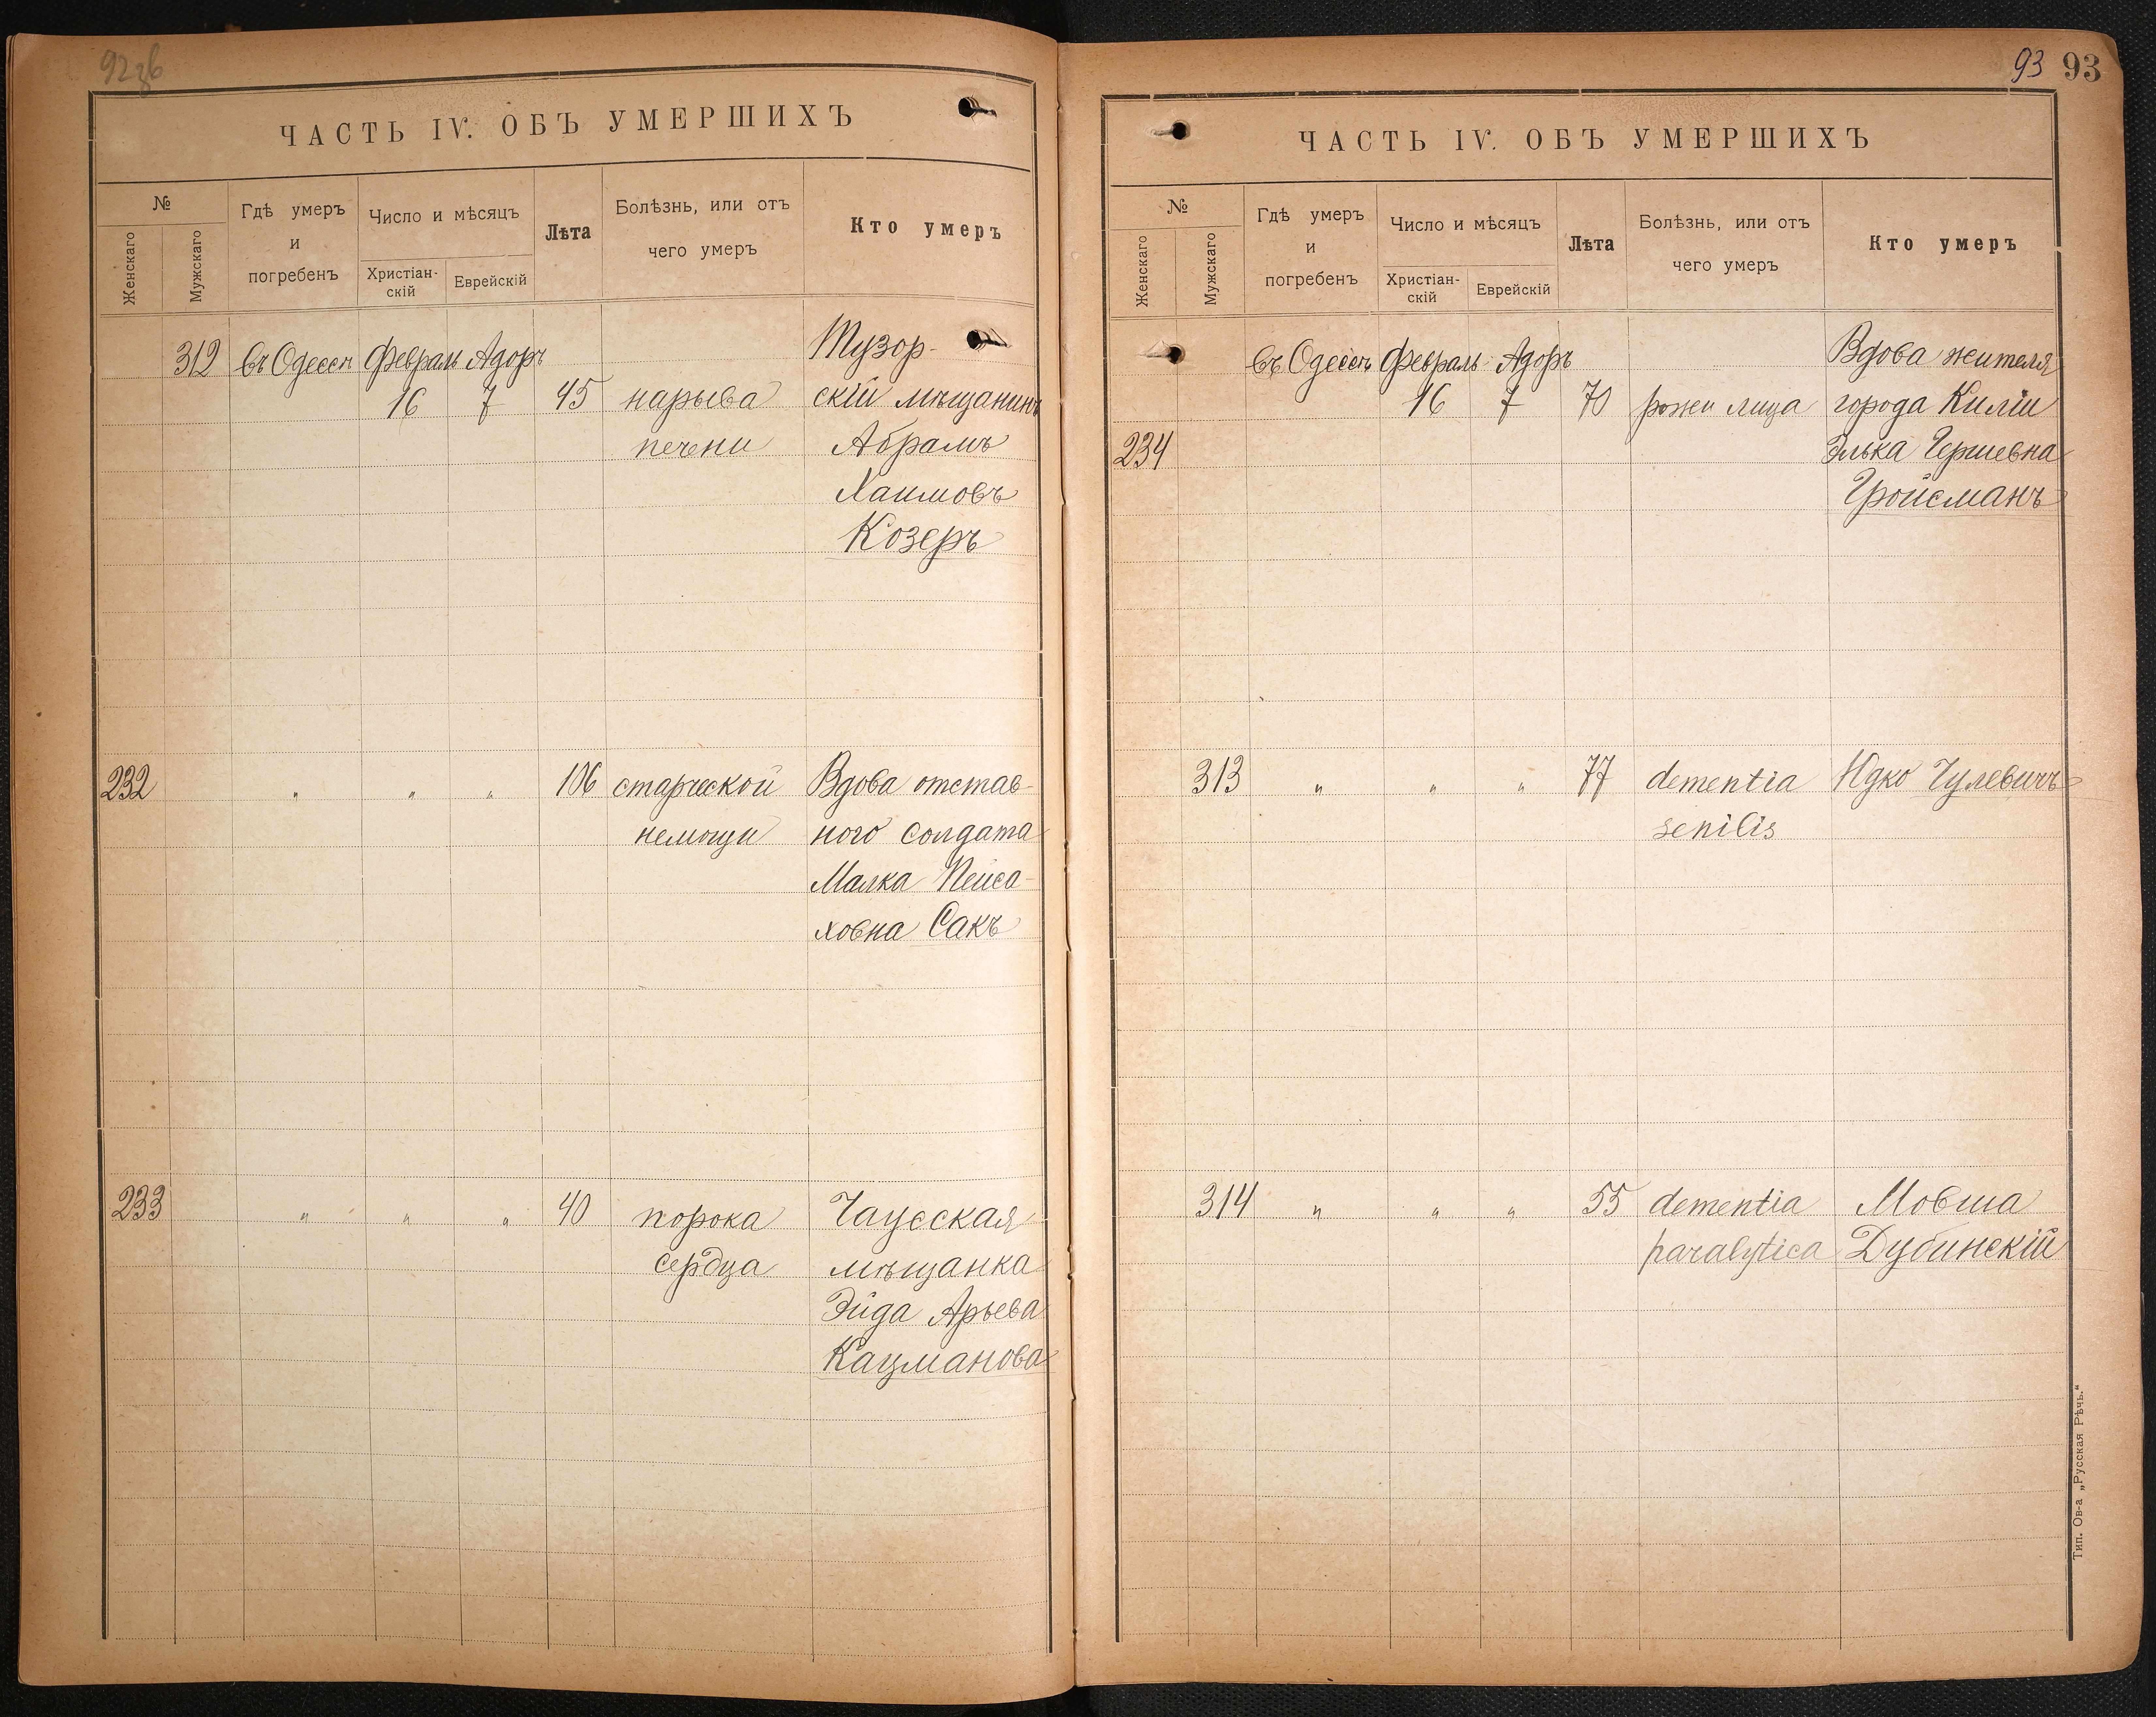 92зв
ЧАСТЬ IV. ОБЪ УМЕРШИХЪ
№
Женскаго
Мужскаго
Гдѣ умеръ
и
погребенъ
Число и мѣсяцъ
Христіан-
скій
Еврейскій
Лѣта
Болѣзнь, или отъ
чего умеръ
Кто умеръ
312 въ Одессѣ Февраль Адоръ Тузор-
16 7 45 нарыва скій мѣщанинъ
печени Абрамъ
Хаимовъ
Козеръ
232 " " " 106 старческой Вдова отстав-
немощи ного солдата
Малка Пейса-
ховна Сакъ
233 " " " 40 порока Чауская
сердца мѣщанка
Эйда Арьева
Кацманова
93 93
ЧАСТЬ IV. ОБЪ УМЕРШИХЪ
№
Женскаго
Мужскаго
Гдѣ умеръ
и
погребенъ
Число и мѣсяцъ
Христіан-
скій
Еврейскій
Лѣта
Болѣзнь, или отъ
чего умеръ
Кто умеръ
въ Одессѣ Февраль Адоръ Вдова жителя
16 7 70 рожи лица города Киліи
234 Элька Гершевна
Гройсманъ
313 " " " 77 dementia Юдко Гулевичъ
senilis
314 " " " 55 dementia Мовша
paralytica Дубинскій
Тип. Ов-а „Русская Рѣчь."